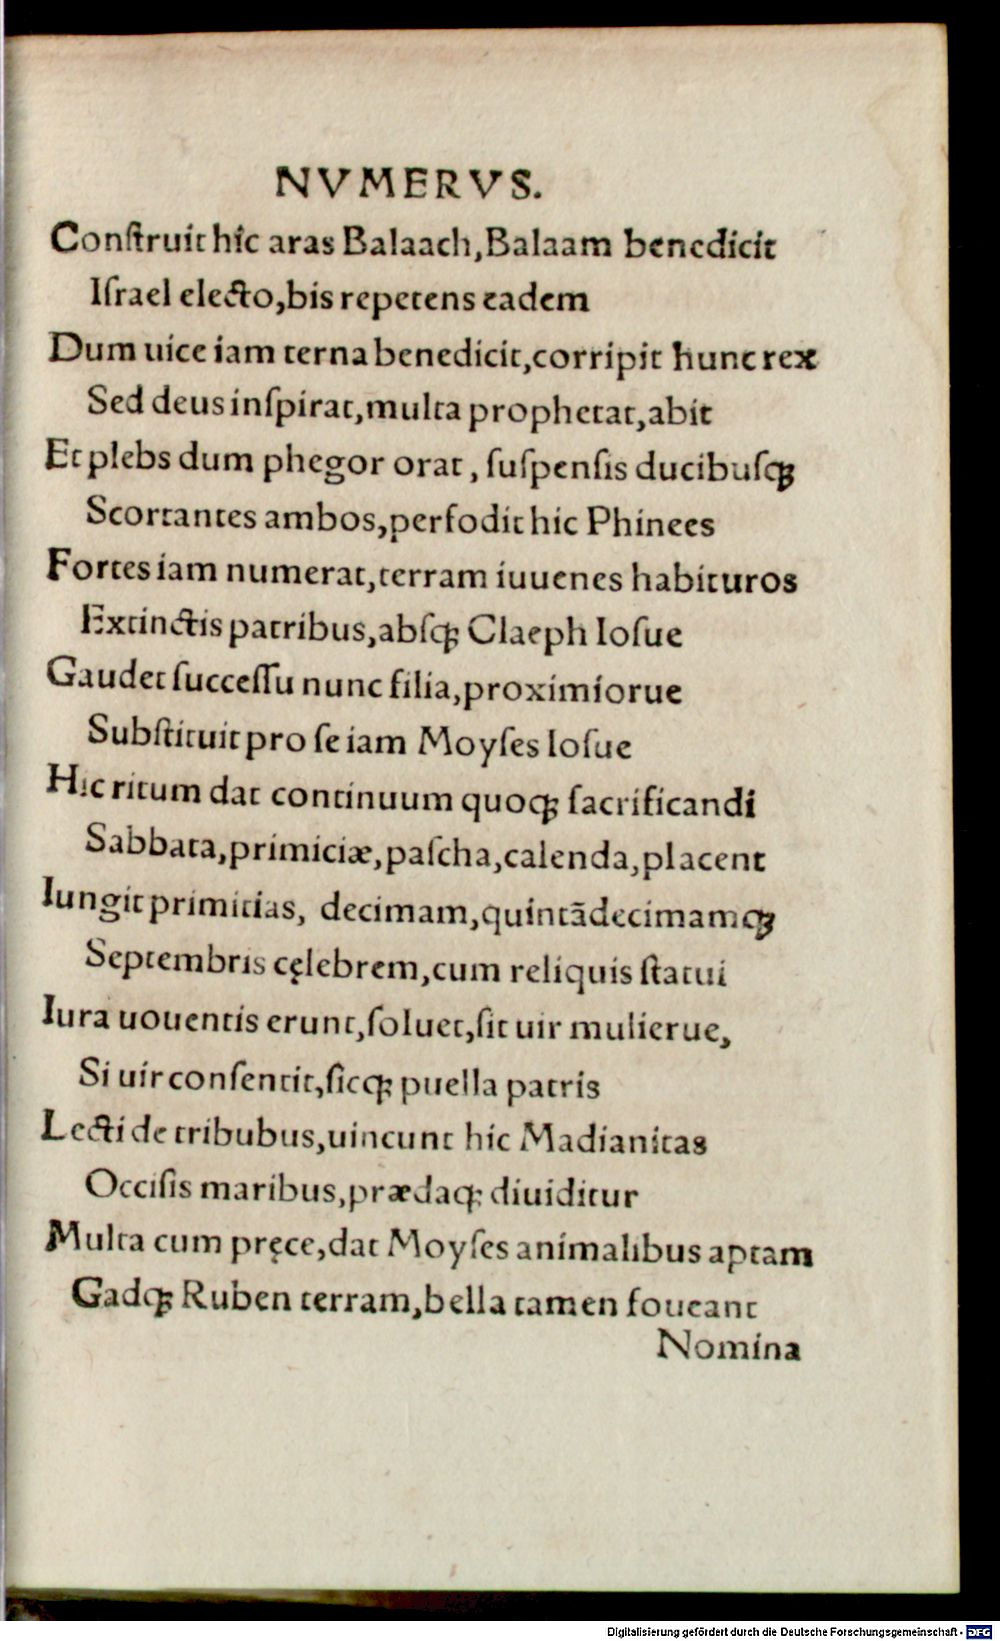 NVMERVS.
Conſtruit hic aras Balaach,Balaam benedicit
Iſrael electo,bis repetens eadem
Dum uice iam terna benedicit,corripit hunc rex
Sed deus inſpirat,multa prophetat,abit
Et plebs dum phegor orat, ſuſpenſis ducibuſqꝫ
Scortantes ambos,perfodit hic Phinees
Fortes iam numerat,terram iuuenes habituros
Extinctis patribus,abſqꝫ Claeph Ioſue
Gaudet ſucceſſu nunc filia,proximiorue
Subſtituit pro ſe iam Moyſes Ioſue
Hic ritum dat continuum quoqꝫ ſacrificandi
Sabbata,primiciæ,paſcha,calenda,placent
Iungit primitias, decimam,quintãdecimamqꝫ
Septembris cęlebrem,cum reliquis ſtatui
Iura uouentis erunt,ſoluet,ſit uir mulierue,
Si uir conſentit,ſicqꝫ puella patris
Lecti de tribubus,uincunt hic Madianitas
Occiſis maribus,prædaqꝫ diuiditur
Multa cum pręce,dat Moyſes animalibus aptam
Gadqꝫ Ruben terram,bella tamen foueant
Nomina
Digitalisierung gefördert durch die Deutsche Forschungsgemeinschaft - DFG